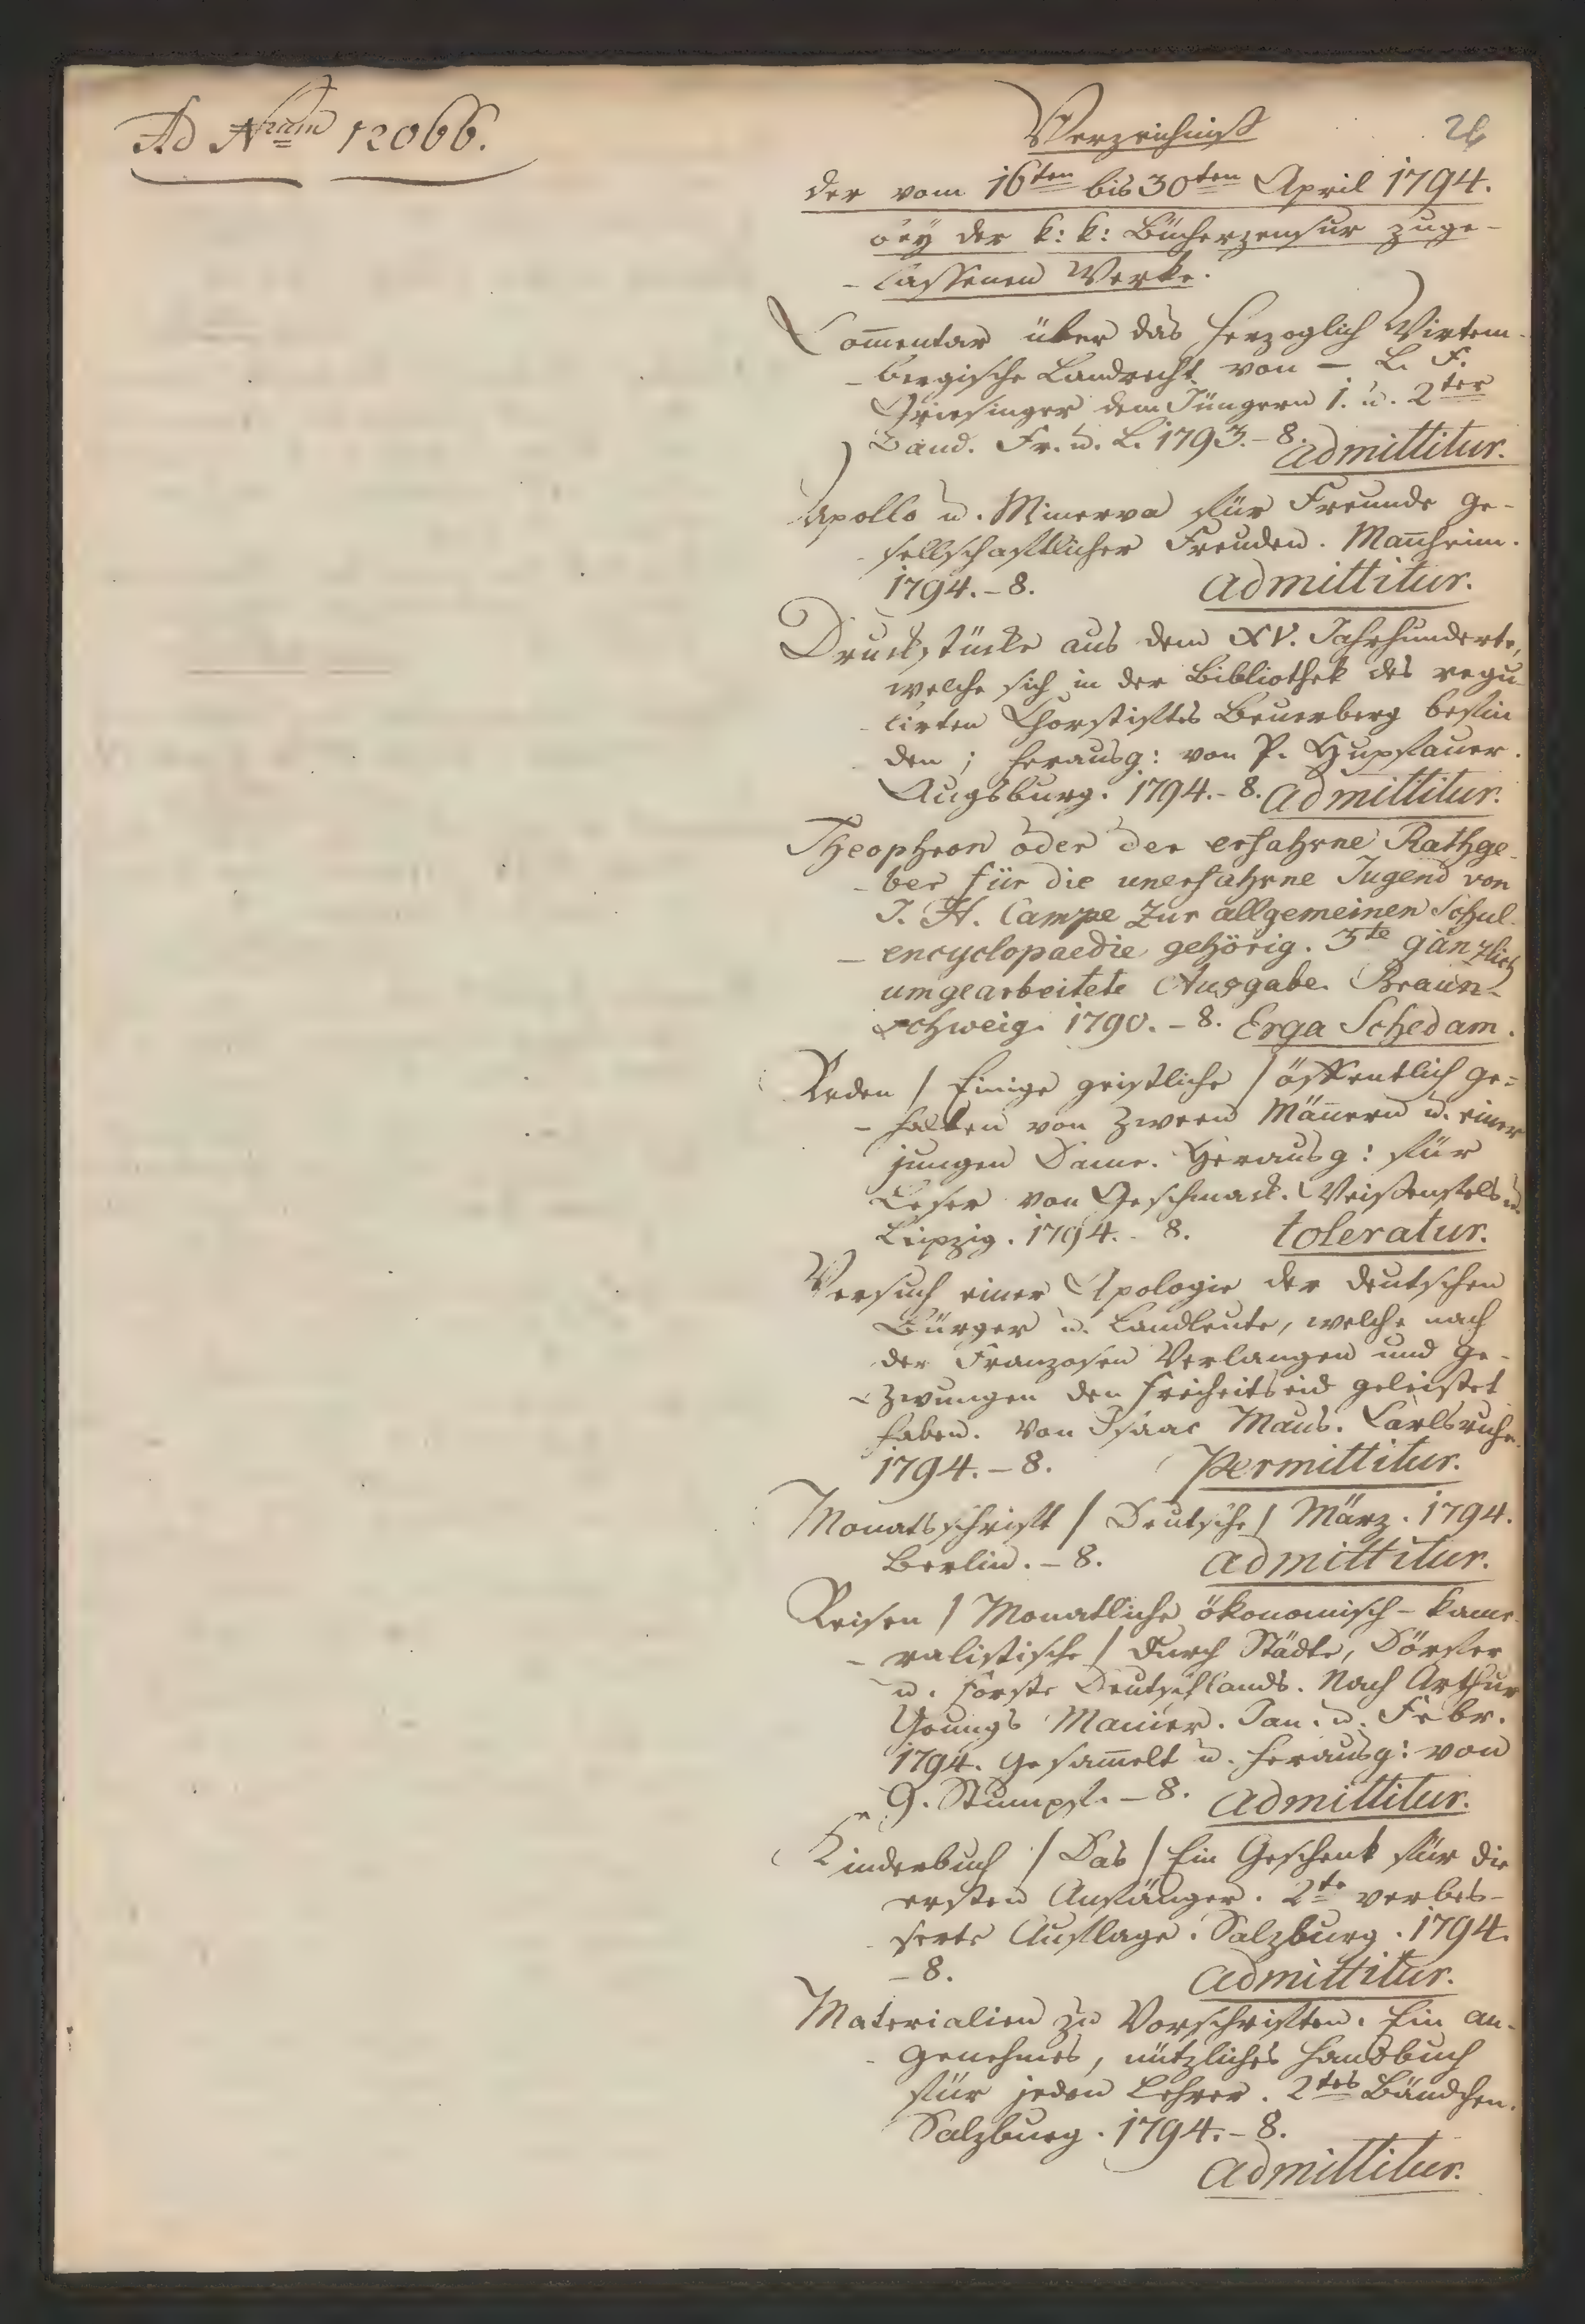 Ad Nrum 12066.
Verzeichniß
26
der vom 16ten bis 30ten April 1794.
bey der k: k: Bücherzensur zuge-
- lassenen Werke.
Com̅entar über das herzoglich Wirtem-
- bergische Landrecht von - L. F.
Griesinger dem Jüngern 1. u. 2ter
Band. Fr. u. L. 1793. - 8. admittitur.
Apollo u. Minerva für Freunde ge-
- sellschaftlicher Freuden. Man̅heim.
1794. - 8. admittitur.
Druckstücke aus dem XV. Jahrhunderte,
welche sich in der Bibliothek des regu-
- lirten Chorstiftes Beuerberg befin
den; herausg: von P. Hupfauer.
Augsburg. 1794. - 8. admittitur.
Theophron oder der erfahrne Rathge-
- ber für die unerfahrne Jugend von
J. H. Campe Zur allgemeinen Schul-
- encyclopaedie gehörig. 3te gänzlich
umgearbeitete Ausgabe. Braun-
schweig. 1790. - 8. Erga Schedam.
Reden / Einige geistliche / öffentlich ge=
- halten von zween Män̅ern u. einer
jungen Dame. Herausg: für
Leser von Geschmack. Weißenfels u.
Leipzig. 1794. - 8. toleratur.
Versuch einer Apologie der deutschen
Bürger u. Landleute, welche nach
der Franzosen Verlangen und ge-
- zwungen den Freiheitseid geleistet
haben. Von Isaac Maus. Carlsruhe.
1794. - 8. Permittitur.
Monatsschrift / Deutsche / März. 1794.
Berlin. - 8. admittitur.
Reisen / Monatliche ökonomisch - kame-
- ralistische / durch Städte, Dörfer
u. Forste Deutschlands. Nach Arthur
Youngs Manier. Jan. u. Febr.
1794. Gesam̅elt u. herausg: von
G. Stumpf. - 8. admittitur.
Kinderbuch / Das / Ein Geschenk für die
ersten Anfänger. 2te verbes-
- serte Auflage. Salzburg. 1794.
- 8. admittitur.
Materialien zu Vorschriften. Ein an-
- genehmes, nützliches Handbuch
für jeden Lehrer. 2tes Bändchen.
Salzburg. 1794. - 8.
admittitur.